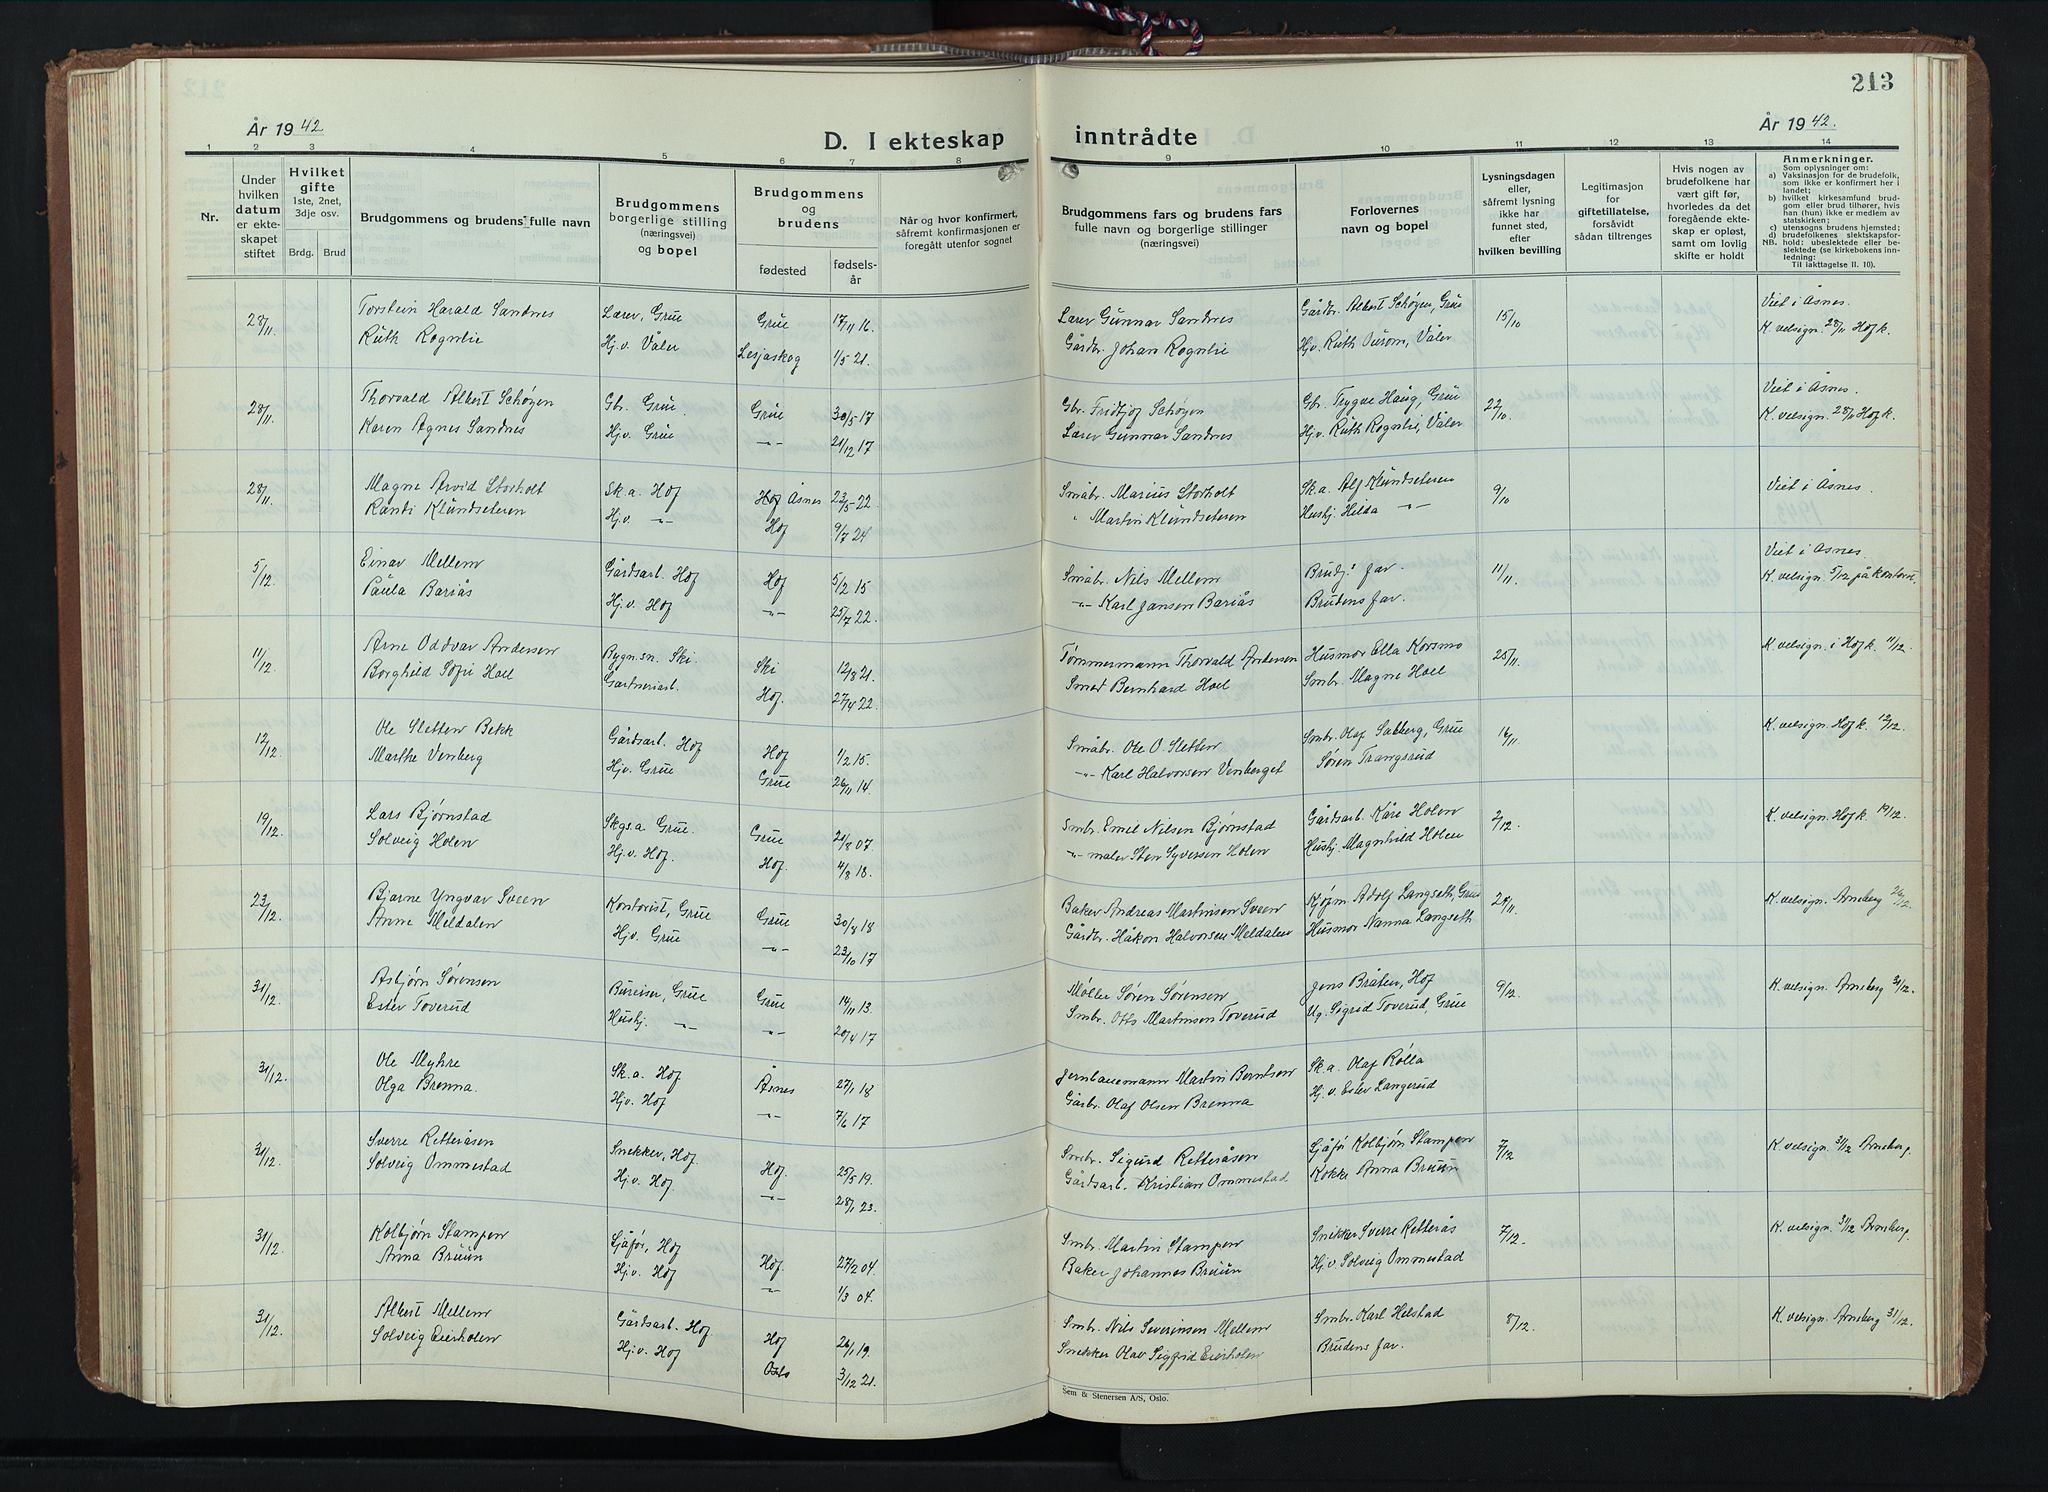 213
År 1942
D. I ekteskap inntrådte
År 1942.
1 2 3 4 5 6 7 8 9 10 11 12 13 14
Nr.
Under hvilken datum er ekteskapet stiftet
Hvilket gifte 1ste, 2net, 3dje osv.
Brdg. Brud
Brudgommens og brudens fulle navn
Brudgommens borgerlige stilling (næringsvei) og bopel
Brudgommens og brudens
fødested
fødselsår
Når og hvor konfirmert, såfremt konfirmasjonen er foregått utenfor sognet
Brudgommens fars og brudens fars fulle navn og borgerlige stillinger (næringsvei)
Forlovernes navn og bopel
Lysningsdagen eller, såfremt lysning ikke har funnet sted, efter hvilken bevilling
Legitimasjon for giftetillatelse, forsåvidt sådan tiltrenges
Hvis nogen av brudefolkene har vært gift før, hvorledes da det foregående ekteskap er opløst, samt om lovlig skifte er holdt
Anmerkninger.
Som oplysninger om:
a) Vaksinasjon for de brudefolk, som ikke er konfirmert her i landet;
b) hvilket kirkesamfund brudgom eller brud tilhører, hvis han (hun) ikke er medlem av statskirken;
c) utensogns brudens hjemsted;
d) brudefolkenes slektskapsforhold: ubeslektede eller beslektede (se kirkebokens innledning:
NB.
Til iakttagelse II. 10).
28/11 Torstein Harald Sandnes Lærer, Grue Grue 17/11 16. Lærer Gunnar Sandnes Gårdbr. Albert Schøyen, Grue 15/10 Viet i Åsnes.
Ruth Rognlie Hj.v. Våler Lesjaskog 1/5 21. Gårdbr. Johan Rognlie Hjv. Ruth Ourom, Våler K. velsign. 28/11 Hof k.
28/11 Thorvald Albert Schøyen Gbr. Grue Grue 30/5 17 Gbr. Fridtjof Schøyen Gbr. Trygve Haug, Grue 22/10 Viet i Åsnes.
Karen Agnes Sandnes Hj.v. Grue -"- 21/12 17 Lærer Gunnar Sandnes Hj.v. Ruth Rognlie, Våler K. velsign. 28/11 Hof k.
28/11 Magne Arvid Storholt Sk.a. Hof Hof Åsnes 23/5 22 Småbr. Marius Storholt Sk.a. Alf Klundseteren 9/10 Viet i Åsnes.
Randi Klundseteren Hj.v. -"- Hof 9/7 24 " Martin Klundseteren Husbj. Hilda -"-
5/12 Einar Mellem Gårdsarb. Hof Hof 5/2 15 Småbr. Nils Mellem Brudg.s far. 11/11. Viet i Åsnes.
Paula Bariås Hj.v. Hof -"- 25/7 22. -"- Karl Jansen Bariås Brudens far. K. velsign. 5/12 på kontoret.
11/12 Arne Oddvar Andersen Bygn.sn. Ski Ski 12/8 21. Tømmermann Thorvald Andersen Husmor Ella Korsmo 25/11. K. velsign. i Hof k. 11/12.
Borghild Sofie Hoel Gartneriarb. Hof. 27/4 22. Smed Bernhard Hoel Smbr. Magne Hoel
12/12. Ole Sletten Bekk Gårdsarb. Hof Hof 1/2 15. Småbr. Ole O. Sletten Smbr. Olaf Sætberg, Grue 16/11. K. velsign. Hof k. 12/12
Marthe Venberg Hjv. Grue Grue 26/11 14. -"- Karl Halvorsen Venberget Søren Trangsrud
19/12. Lars Bjørnstad Skgs.a Grue. Grue 21/8 07 Smbr. Emil Nilsen Bjørnstad Gårdsarb. Kåre Holen 2/12. K. velsign. Hof k. 19/12.
Solveig Holen Hj.v. Hof. Hof. 4/8 18. -"- maler Sten Syversen Holen Husbj. Magnhild Holen
23/12. Bjarne Yngvar Sveen Kontorist, Grue Grue 30/8 18 Baker Andreas Martinsen Sveen Kjøpm. Adolf Langseth, Grue 24/11. K. velsign. Arneberg 26/12.
Anne Meldalen Hjv. Grue -"- 23/10 17 Gårdbr. Håkon Halvorsen Meldalen Husmor Nanna Langseth
31/12. Asbjørn Sørensen Bureiser, Grue Grue 14/11 13. Møller Søren Sørensen Jens Bråten, Hof 9/12. K. velsign. Arneberg 31/12.
Ester Toverud Husbj. -"- -"- 20/4 17 Smbr. Otto Martinsen Toverud Ug. Sigrid Toverud, Grue
31/12. Ole Myhre Sk.a. Hof Åsnes 27/1 18 Jernbanemann Martin Berntsen Sk.a. Olaf Rolla
Olga Brenna. Hj.v. Hof -"- 7/6 17 Gårbr. Olaf Olsen Brenna Hj.v. Ester Langerud
31/12. Sverre Retteråsen Snekker, Hof. Hof. 25/5 19. Smbr. Sigurd Retteråsen Sjåfør Kolbjørn Stampen 7/12 K. velsign. 31/12 Arneberg.
Solveig Ommestad Hj.v. Hof. -"- 28/1 23. Gårdsarb. Kristian Ommestad Kokke Anna Bruun
31/12. Kolbjørn Stampen Sjåfør, Hof Hof. 27/2 04. Smbr. Martin Stampen Snekker Sverre Retterås 7/12. K. velsign. 31/12 Arneberg.
Anna Bruun Hj.v. Hof -"- 1/3 04. Baker Johannes Bruun Hj.v. Solveig Ommestad
31/12. Albert Mellem Gårdsarb. Hof Hof 26/1 19. Smbr. Nils Severinsen Mellem Smbr. Karl Helstad 8/12. K. velsign. Arneberg 31/12.
Solveig Eierholen Hj.v. Hof Oslo 3/12 21. Snekker Olav Sigfrid Eierholen Brudens far.
Sem & Stenersen A/S, Oslo.